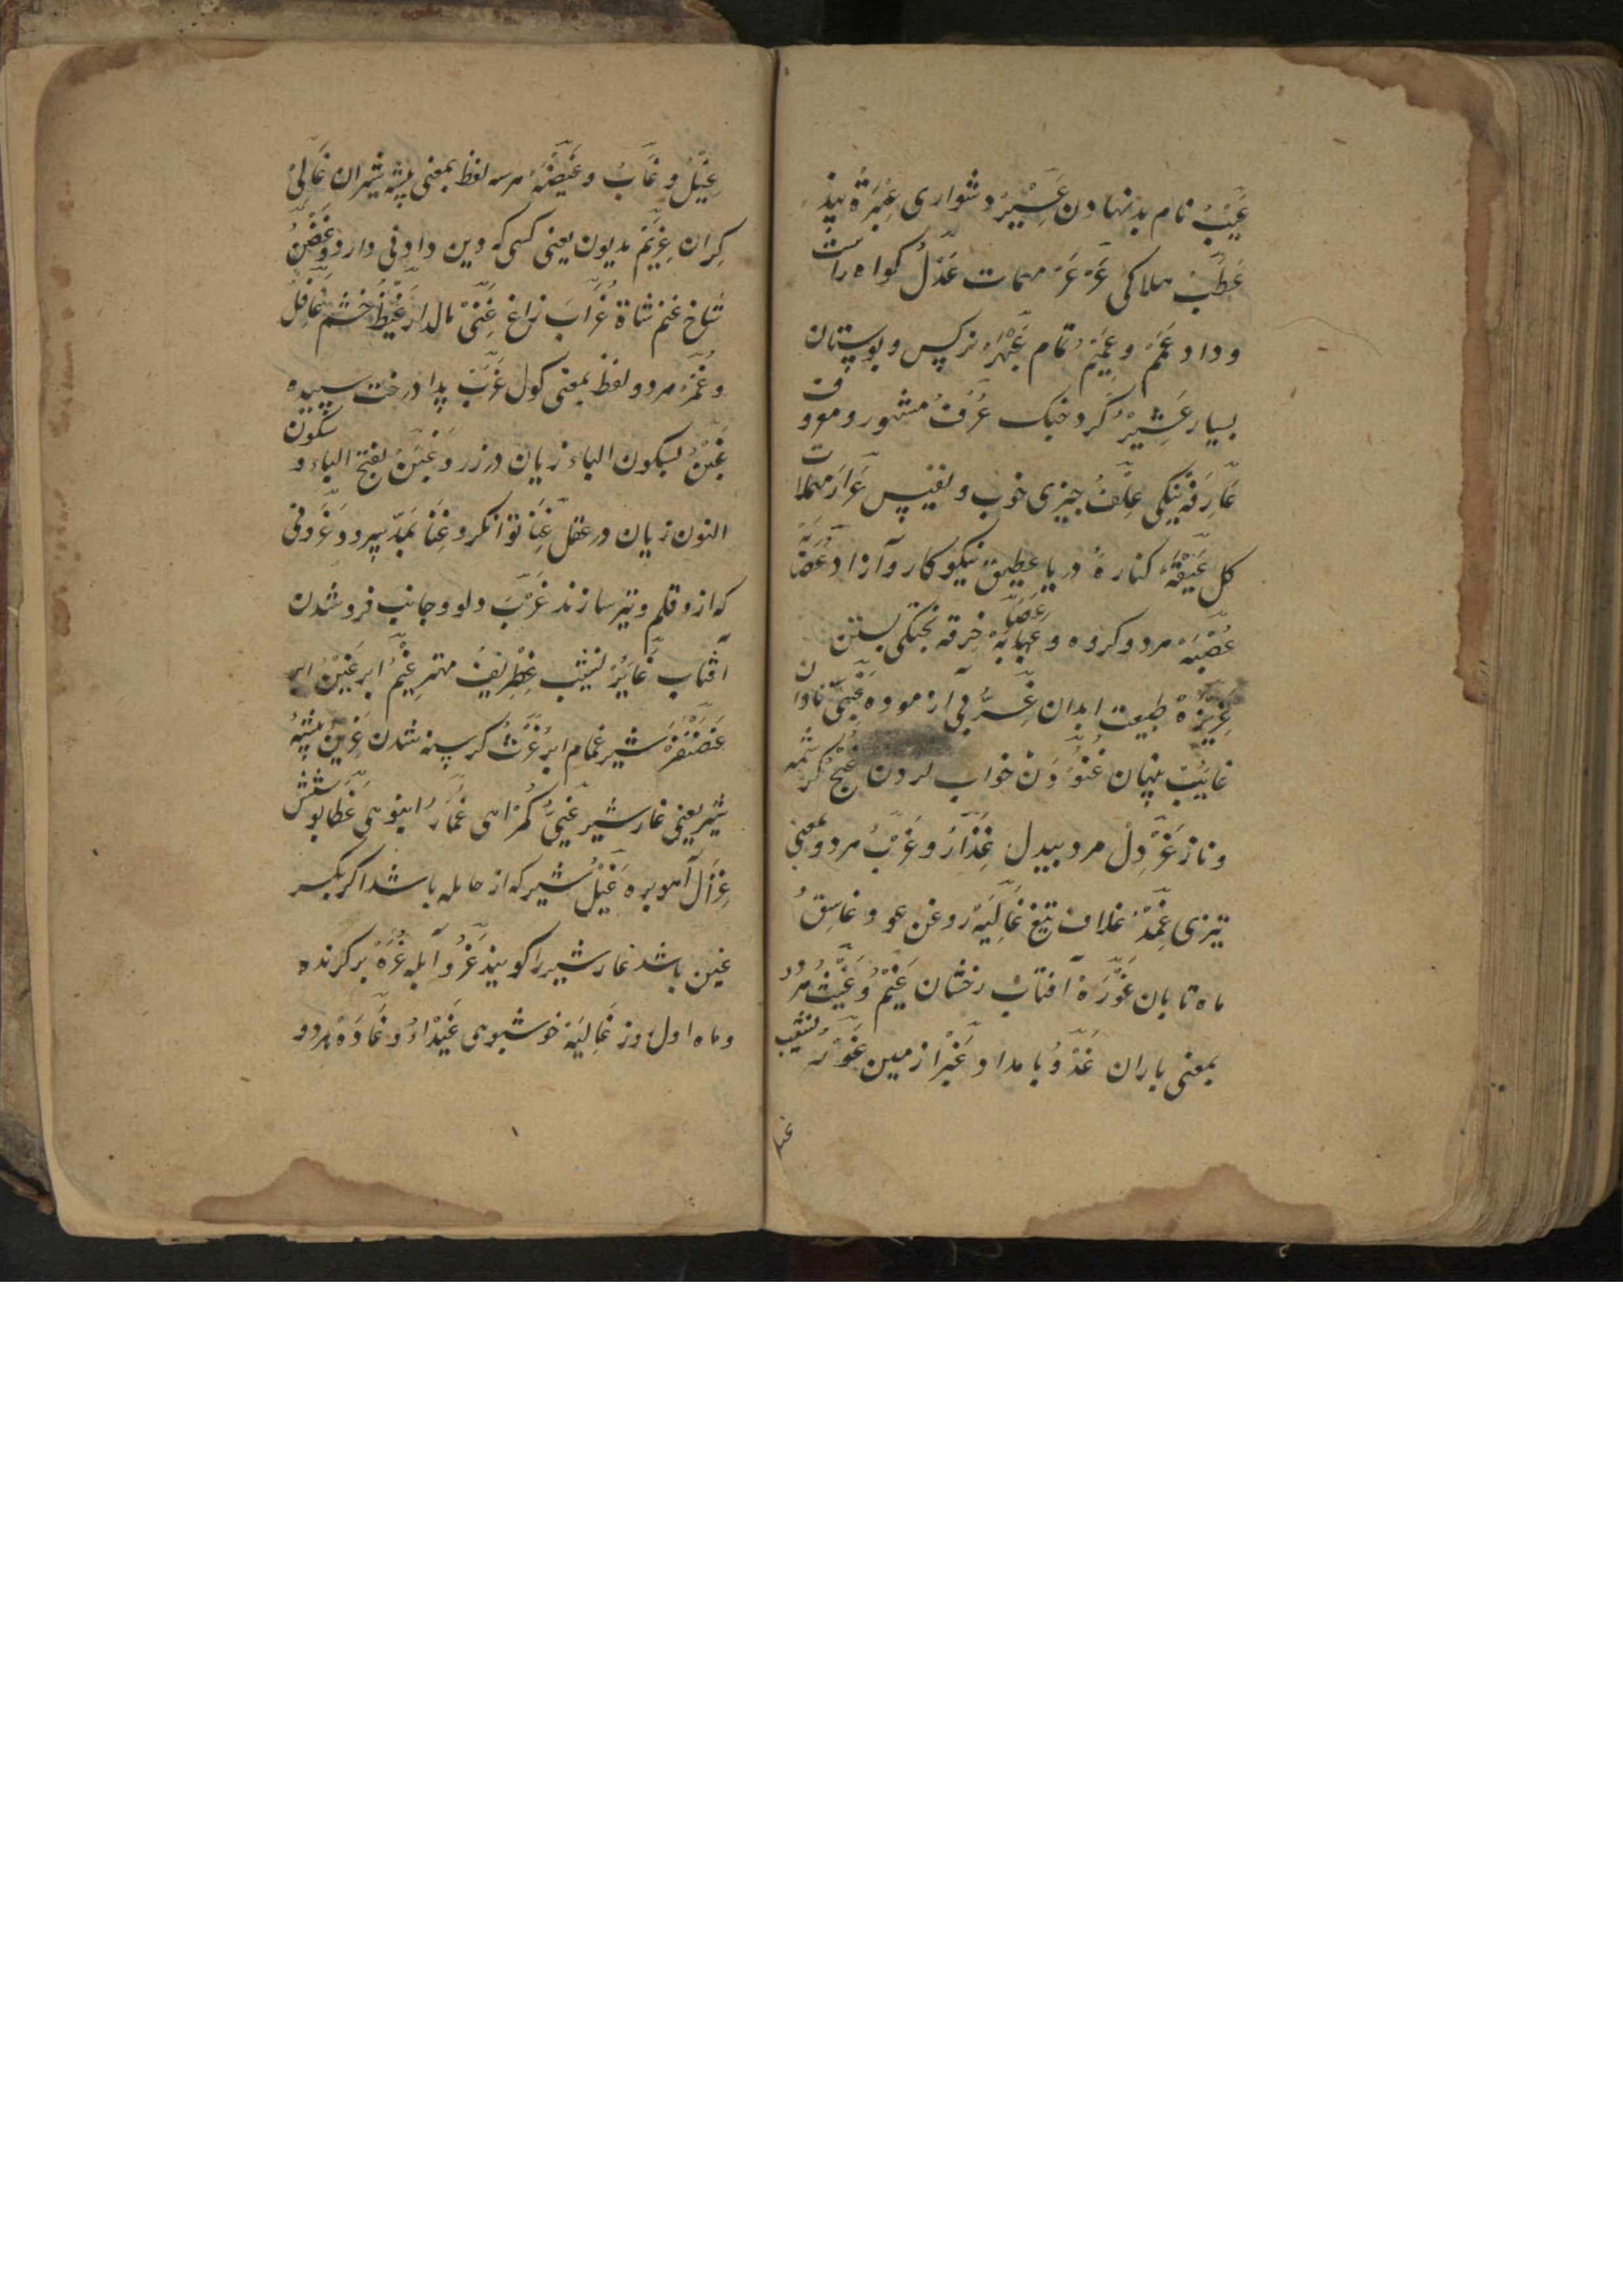 عَیْبُ نام بد نهادن عَسِیْر دشواری عِبْرَةْ پند
عَطَبْ هلاکی عَرْعَرْ مهمات عَدْلُ کواه راست
و داد عَمَمْ و عَمِیْمْ تمام عَبْهَرْ نرکس و بوستان
بسیار عَشِیْرْ کرد خبک عُرْفُ مشهور و معروف
عَارِفَه نیکی عِلْقُ چیزی خوب و نفیس عَرَارَ
کل عَیْقَهْ کنارهٔ دریا عطیق نیکوکار و آزاد
عُصْبَهْ هر دو کروه و عِصَابَهْ خرقه بستن
غَرِیْزَهْ طبیعت ابدان غِرُّ بی آزموده غَبِیْ نادان
غایبُ پنهان غُنُوْدَن خواب کردن غُنْجُ کرشمه
و ناز غَرْدِلْ مرد بیدل غِذَارُ و غَرْبُ هر دو بمعنی
تیزی غِمْدْ غلاف تیغ غَالِیَهْ روغن عو و غاسِقُ
ماه تابان غَوْرَهْ آفتاب رخشان غَیْمُ وُ غَیْثُ هر دو
بمعنی باران غَدْوُ بامداد غَبْرَا زمین غَوْرُ نشیب
غیل
غِیْلُ و غَابُ و غَیْضَهْ هر سه لفظ بمعنی بیشه شیران غَالِیْ
کِران غَرِیْمْ مدیون یعنی کسی که دین دادنی دارد و غُصْنُ
شاخ غنم شاة غُرَابَ زاغ غَنِیْ مالدار غَیْظُ خشم غَافِلُ
و غُمْرُ هر دو لفظ بمعنی کول غَرَبْ پدا درخت سپیده
غَبْنُ بسکون الباء زیان در زر و غَبَنُ بفتح الباء و سکون
النون زیان در عقل غِنَا توانکر و غِنَا بمدّ سرود و غَرْو نی
که ازو قلم و تیر سازند غَرْبَ دلو و جانب فرو شدن
آفتاب غَایَرْ نشیب غِطْرِیْفُ مهتر غَیْمُ ابر غَیْنُ ابر
غَضَنْفَرْ شیر غمام ابر غَرْثُ کرسنه شدن غَرِیْنُ بیشه
شیر یعنی غار شیر غَیُّ کُمراهی غُمَارُ انبوهی غَطَا پوشش
غِزَالُ آهو بره غَیْلُ شیر که از حامله باشد اکر بکسر
غین باشد غار شیر را کویند غَرُو آبله غُرَهْ برکزنده
و ماه اول روز غَالِیَهْ خوشبوی غَیْدَاءُ و غَادَهْ هر دو